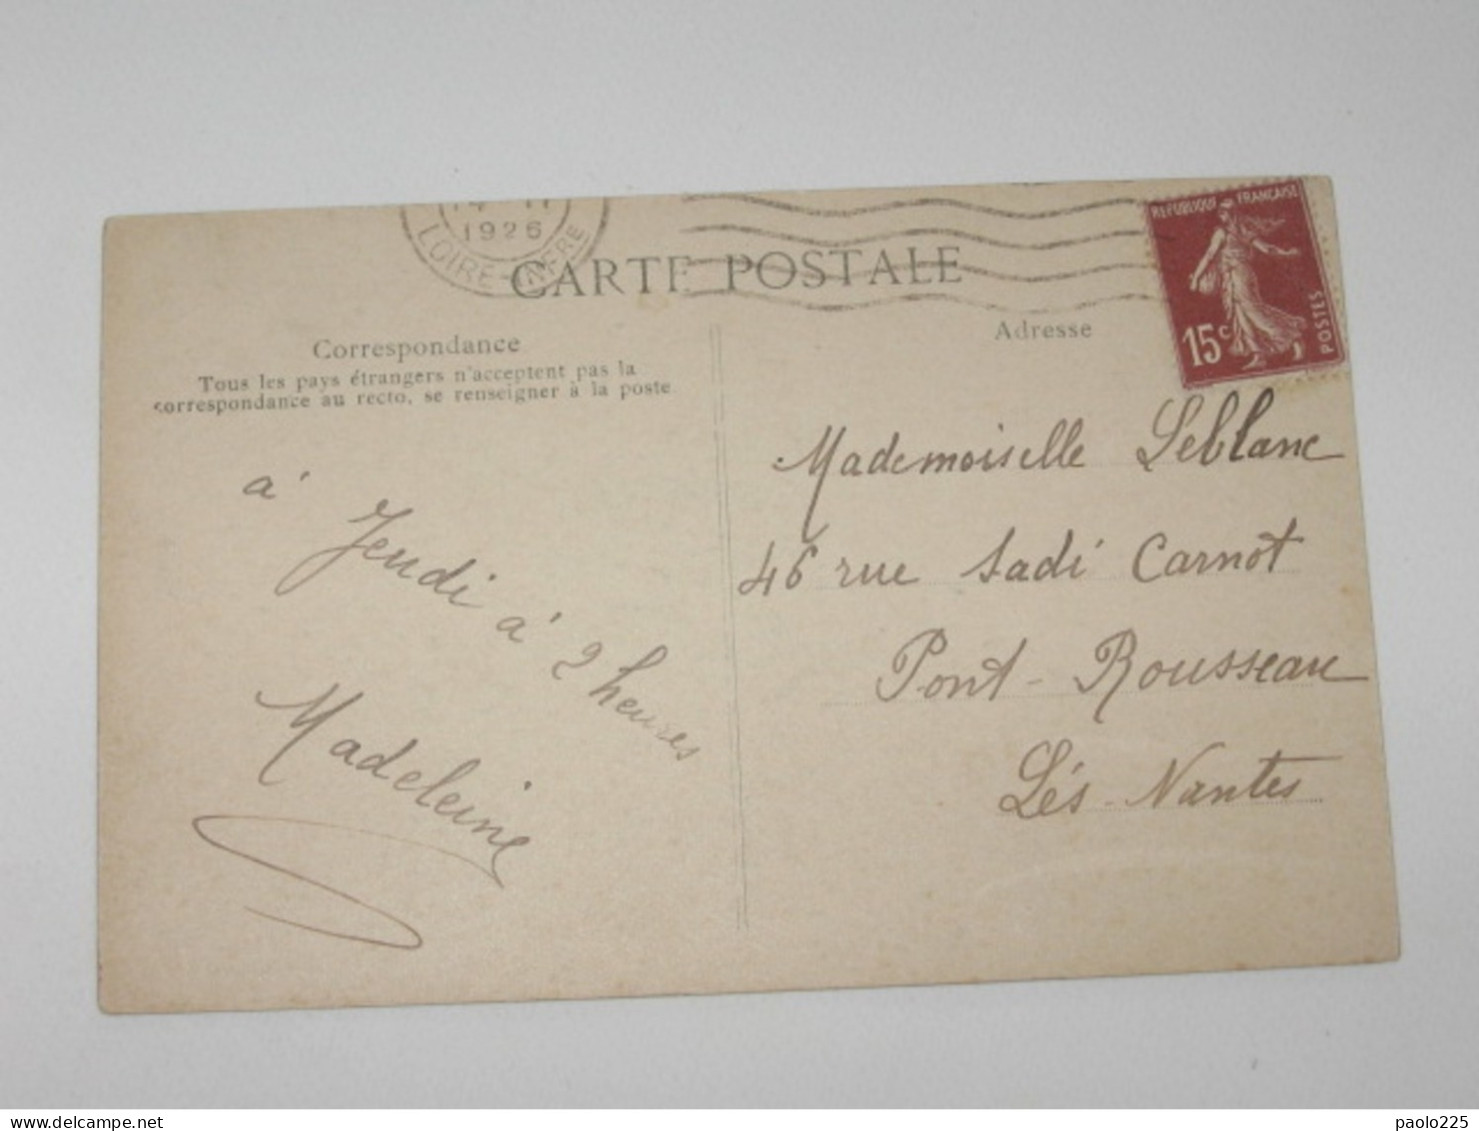 1926
LOIRE-INFRE
CARTE POSTALE
REPUBLIQUE FRANÇAISE
15c
POSTES
Correspondance
Tous les pays étrangers n'acceptent pas la
correspondance au recto, se renseigner à la poste
à Jeudi à 2 heures
Madeleine
Adresse
Mademoiselle Leblanc
46 rue Sadi Carnot
Pont-Rousseau
Lés-Nantes
www.delcampe.net
paolo225